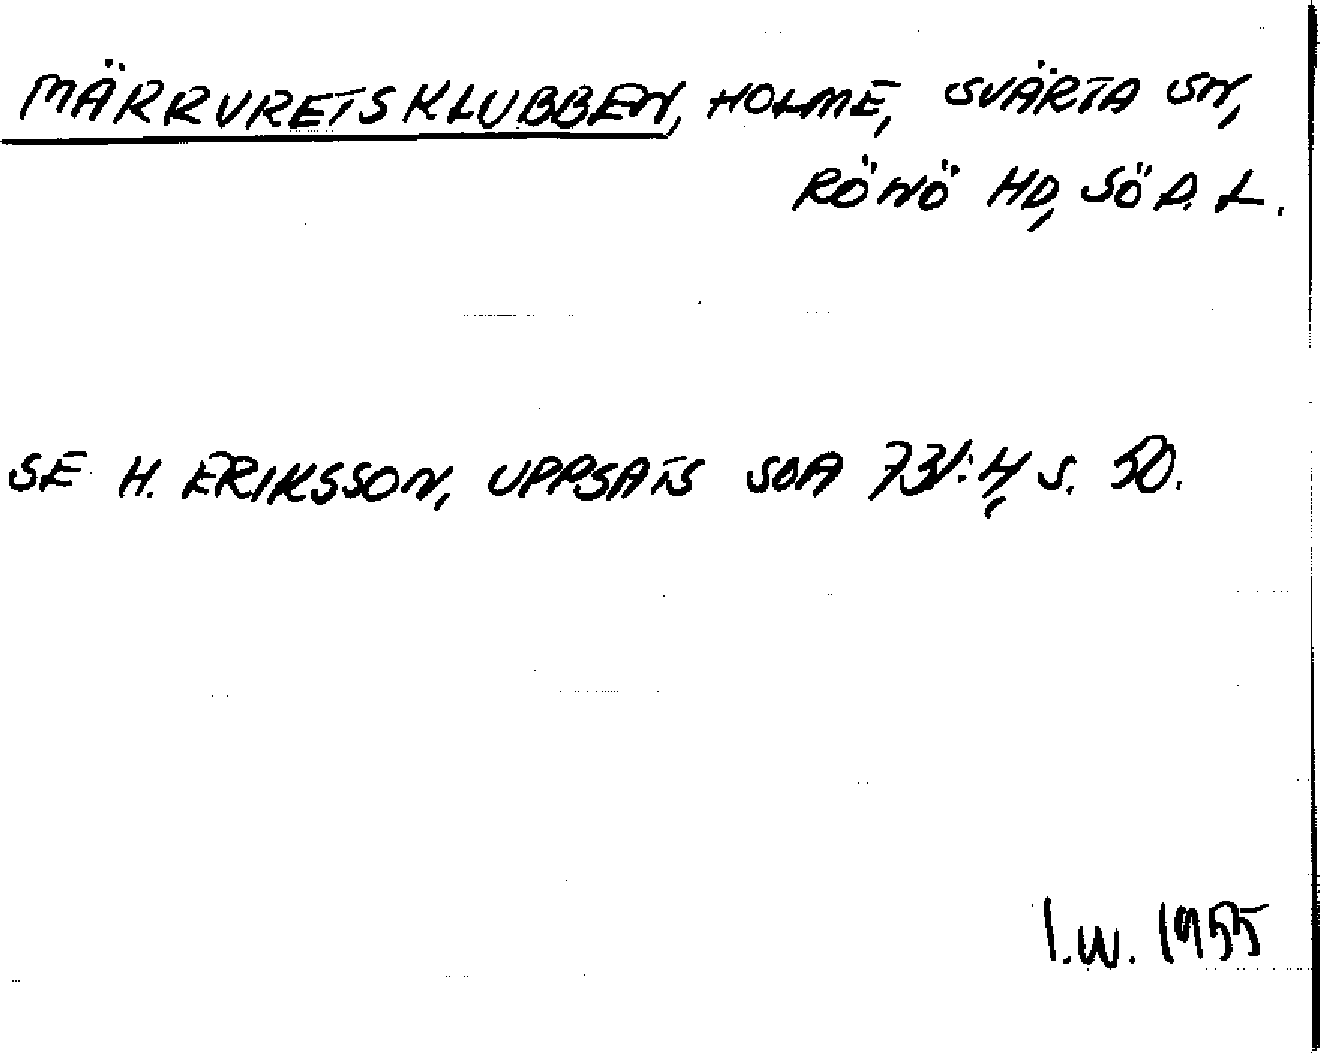 MÄRRVRETSKLUBBEN, HOLME, SVÄRTA SN,
RÖNÖ HD, SÖD. L.
SE H. ERIKSSON, UPPSATS SOA 731:4, S. 50.
I.W. 1955